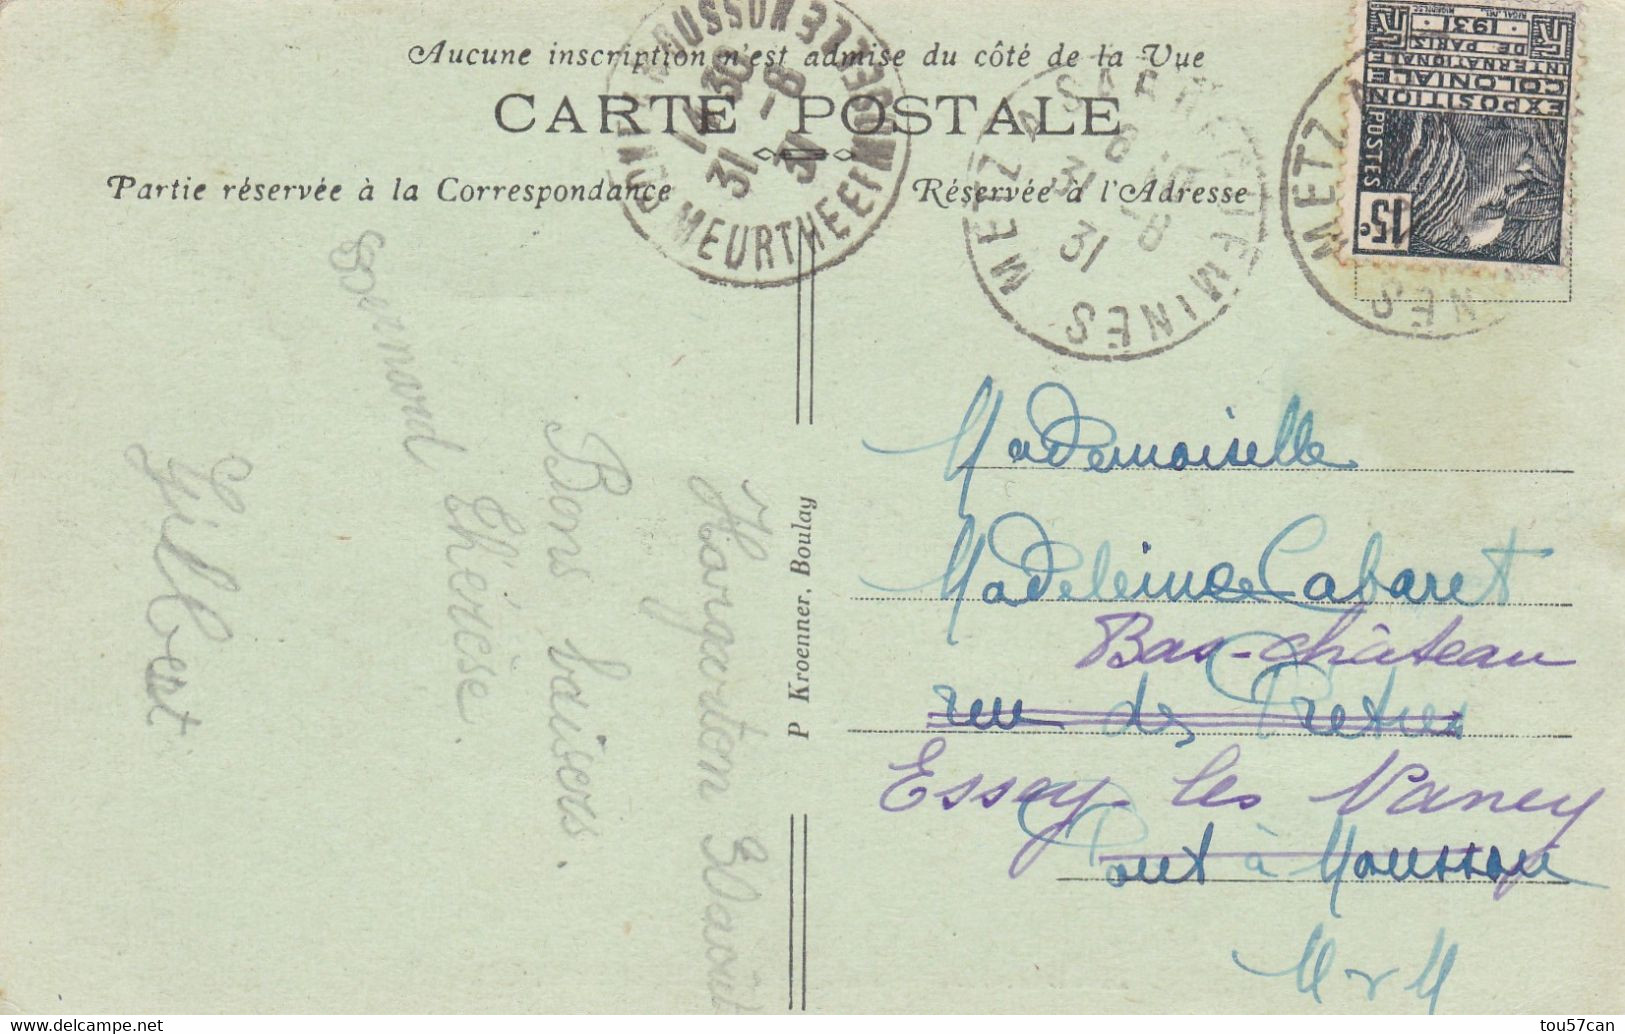 Aucune inscription n'est admise du côté de la Vue
CARTE POSTALE
Partie réservée à la Correspondance
Réservée à l'Adresse
14 30
31 - 8
31
MEURTHE ET MOSELLE
METZ A SARREGUEMINES
31 - 8
31
METZ
EXPOSITION
COLONIALE
INTERNATIONALE
DE PARIS
1931
POSTES
15c
Hargarten 31 août
Bons baisers.
Thérèse.
Bernard
Gilbert
P Kroenner, Boulay
Mademoiselle
Madeleine Cabaret
Bas-château
rue des Pretres
Essey-les Nancy
Pont à Mousson
M & M
tou57can